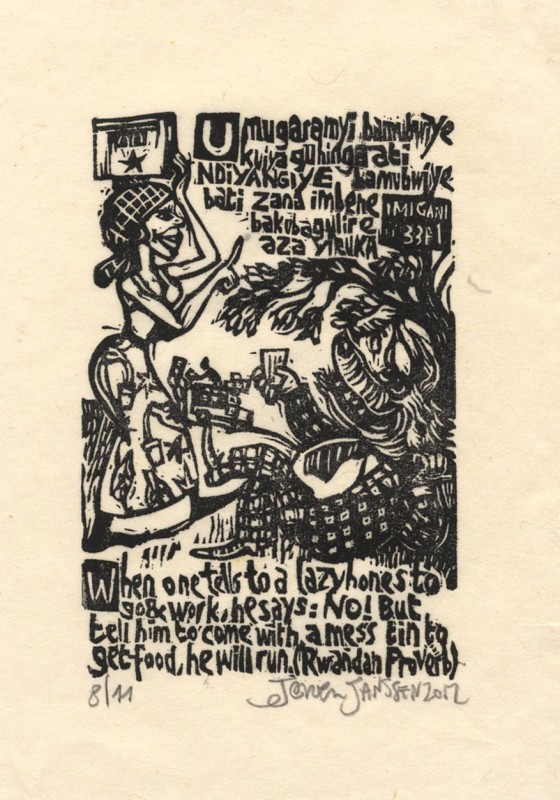 Umugaragnyi bamubwiye
kujya guhinga ati
NDIYANGIYE bamubwiye
bati zana imbehe
bakubagulire
aza YIRUKA
IMIGANI
3371
When one tells to a lazybones to
go & work, he says: NO! But
tell him to come with a mess tin to
get food, he will run. (Rwandan Proverb)
8/11
Jeroen JANSSEN 2012